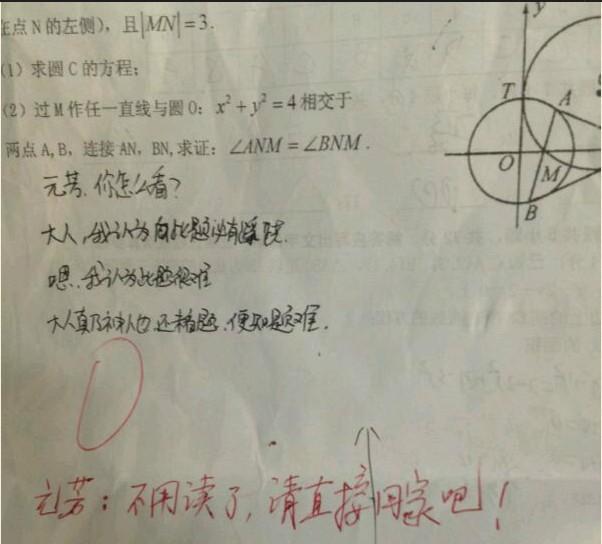 在点N的左侧），且|MN|=3.
（1）求圆C的方程；
（2）过M作任一直线与圆O：x²+y²=4相交于
两点A,B，连接AN，BN,求证：∠ANM=∠BNM．
y
T
A
O
M
B
元芳，你怎么看？
大人，我认为此题必有蹊跷
嗯，我认为此题很难
大人真乃神人也，还未看题，便知题难．
0
元芳：不用读了，请直接回家吧！